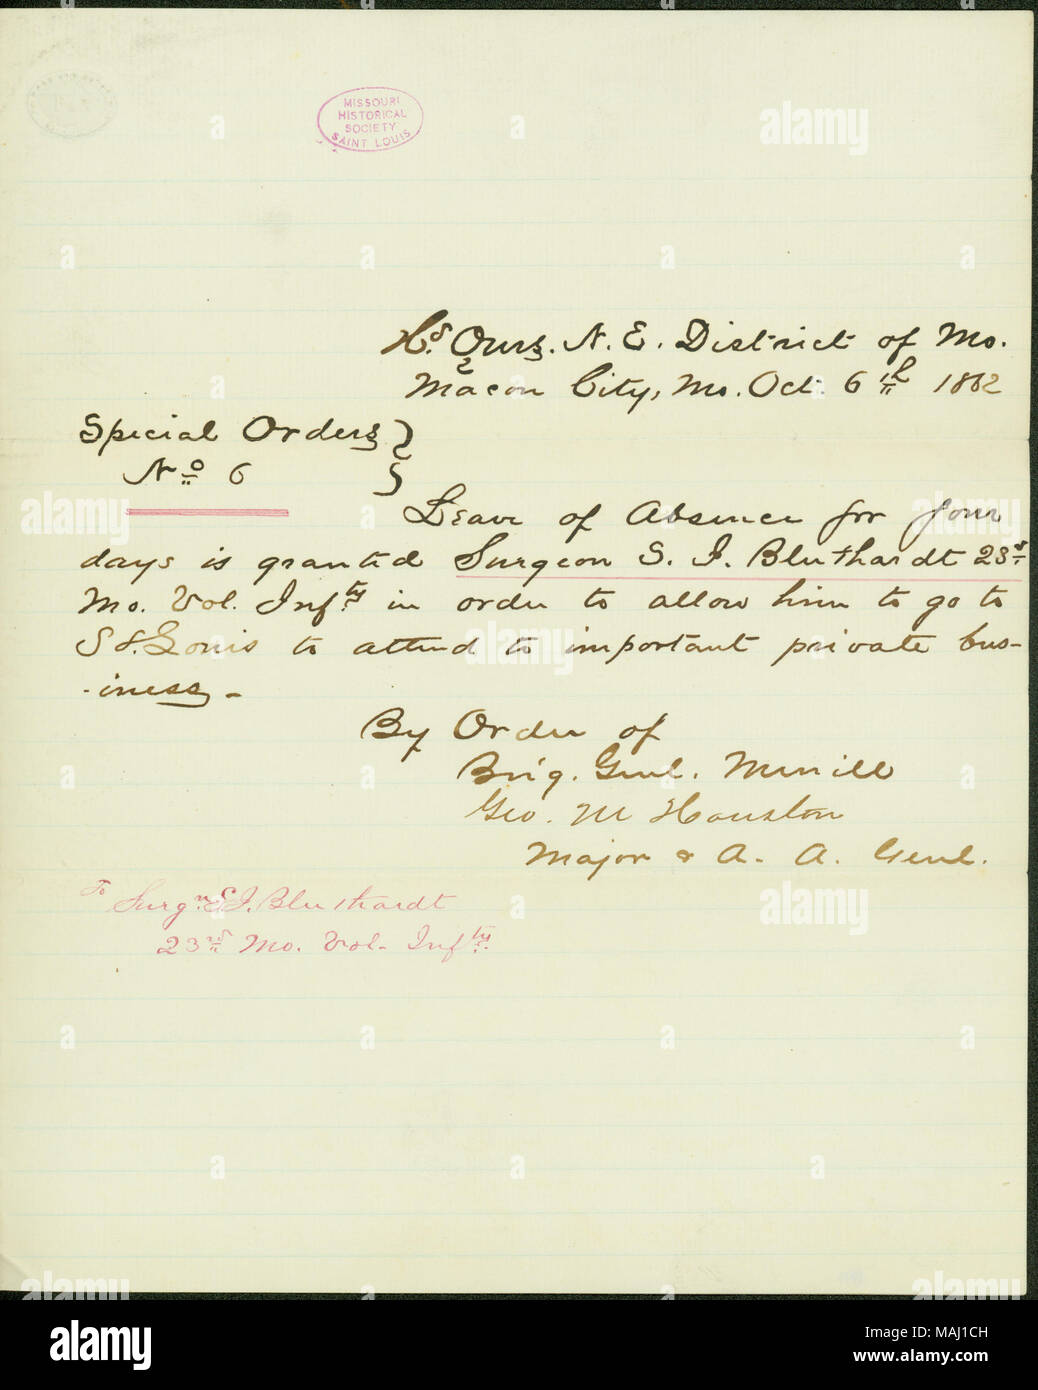 MISSOURI
HISTORICAL
SOCIETY
SAINT LOUIS
Hd. Qurs. N. E. District of Mo.
Macon City, Mo. Oct. 6th 1862
Special Orders
No 6
Leave of Absence for four
days is granted Surgeon S. I. Bluthardt 23d
Mo. Vol. Infty in order to allow him to go to
St. Louis to attend to important private bus-
-iness -
By Order of
Brig. Genl. Merrill
Geo. M Houston
Major & A. A. Genl.
To Surgn. S. I. Bluthardt
23d Mo. Vol. Infty.
alamy
Image ID: MAJ1CH
www.alamy.com